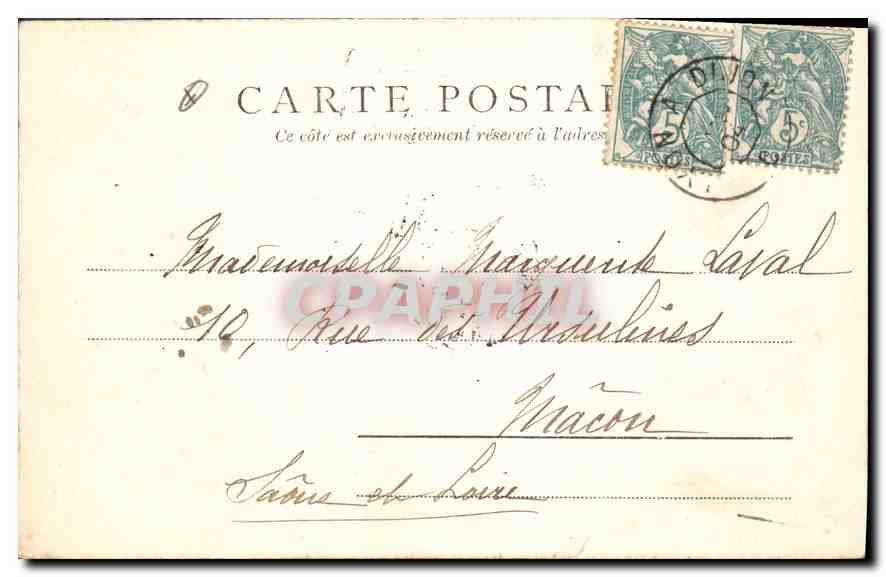 CARTE POSTA
Ce côté est exclusivement réservé à l'adres
5c
POSTES
5c
POSTES
LYON A DIJON
Mademoiselle Marguerite Laval
CPAPHIL
10, Rue des Ursulines
Mâcon
Saône et Loire